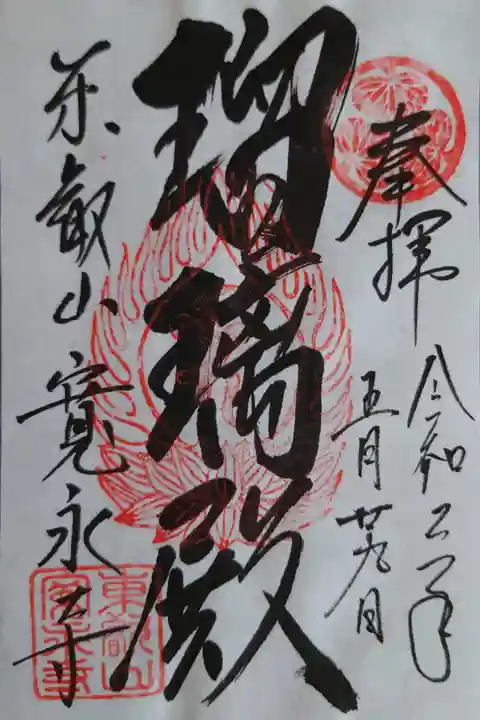 奉拝
令和二年
五月廿九日
瑠璃殿
東叡山寛永寺
東叡山
寛永寺